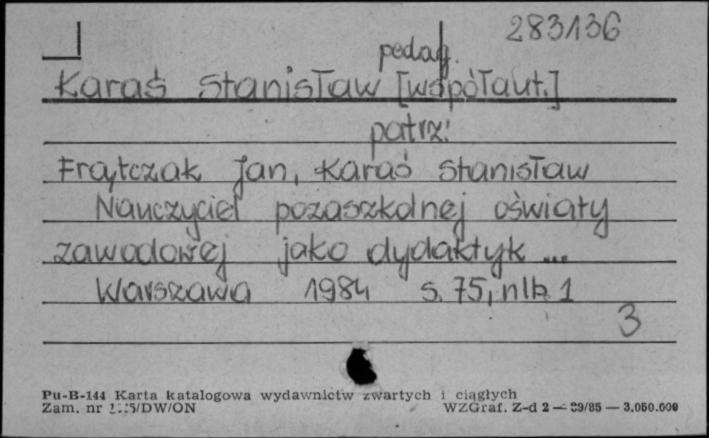 283136
pedag.
Karaś Stanisław [współaut.]
patrz:
Frątczak Jan, Karaś Stanisław
Nauczyciel pozaszkolnej oświaty
zawodowej jako dydaktyk ...
Warszawa 1984 s. 75, nlb. 1
3
Pu-B-144 Karta katalogowa wydawnictw zwartych i ciągłych
Zam. nr /DW/ON WZGraf. Z-d 2 — 39/85 — 3.050.000